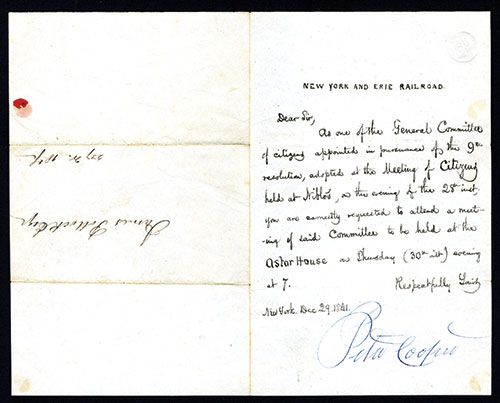 NEW YORK AND ERIE RAILROAD.
Dear Sir,
As one of the General Committee
of citizens appointed in pursuance of the 9th
resolution, adopted at the Meeting of Citizens
held at Niblo's, on the evening of the 28th inst.
you are earnestly requested to attend a meet-
-ing of said Committee to be held at the
Astor House on Thursday (30th inst) evening
at 7. Respectfully
New York. Dec 29. 1841.
Peter Cooper
James